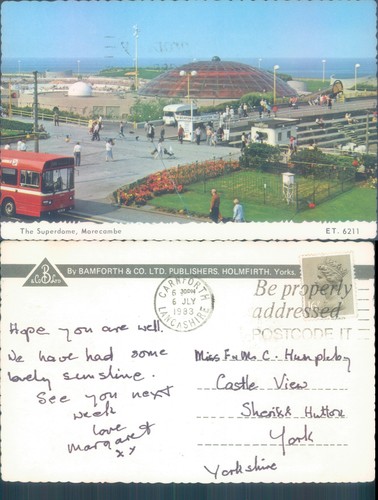 The Superdome, Morecambe
ET. 6211
B
& Co
By BAMFORTH & CO. LTD. PUBLISHERS. HOLMFIRTH, Yorks.
CARNFORTH
6 JLY
1983
LANCASHIRE
Be properly
addressed
POSTCODE IT
Hope you are well.
We have had some
lovely sunshine.
See you next
week
love
Margaret
xx
Miss F & Ms. C. Humpleby
Castle View
Sheriff Hutton
York
Yorkshire